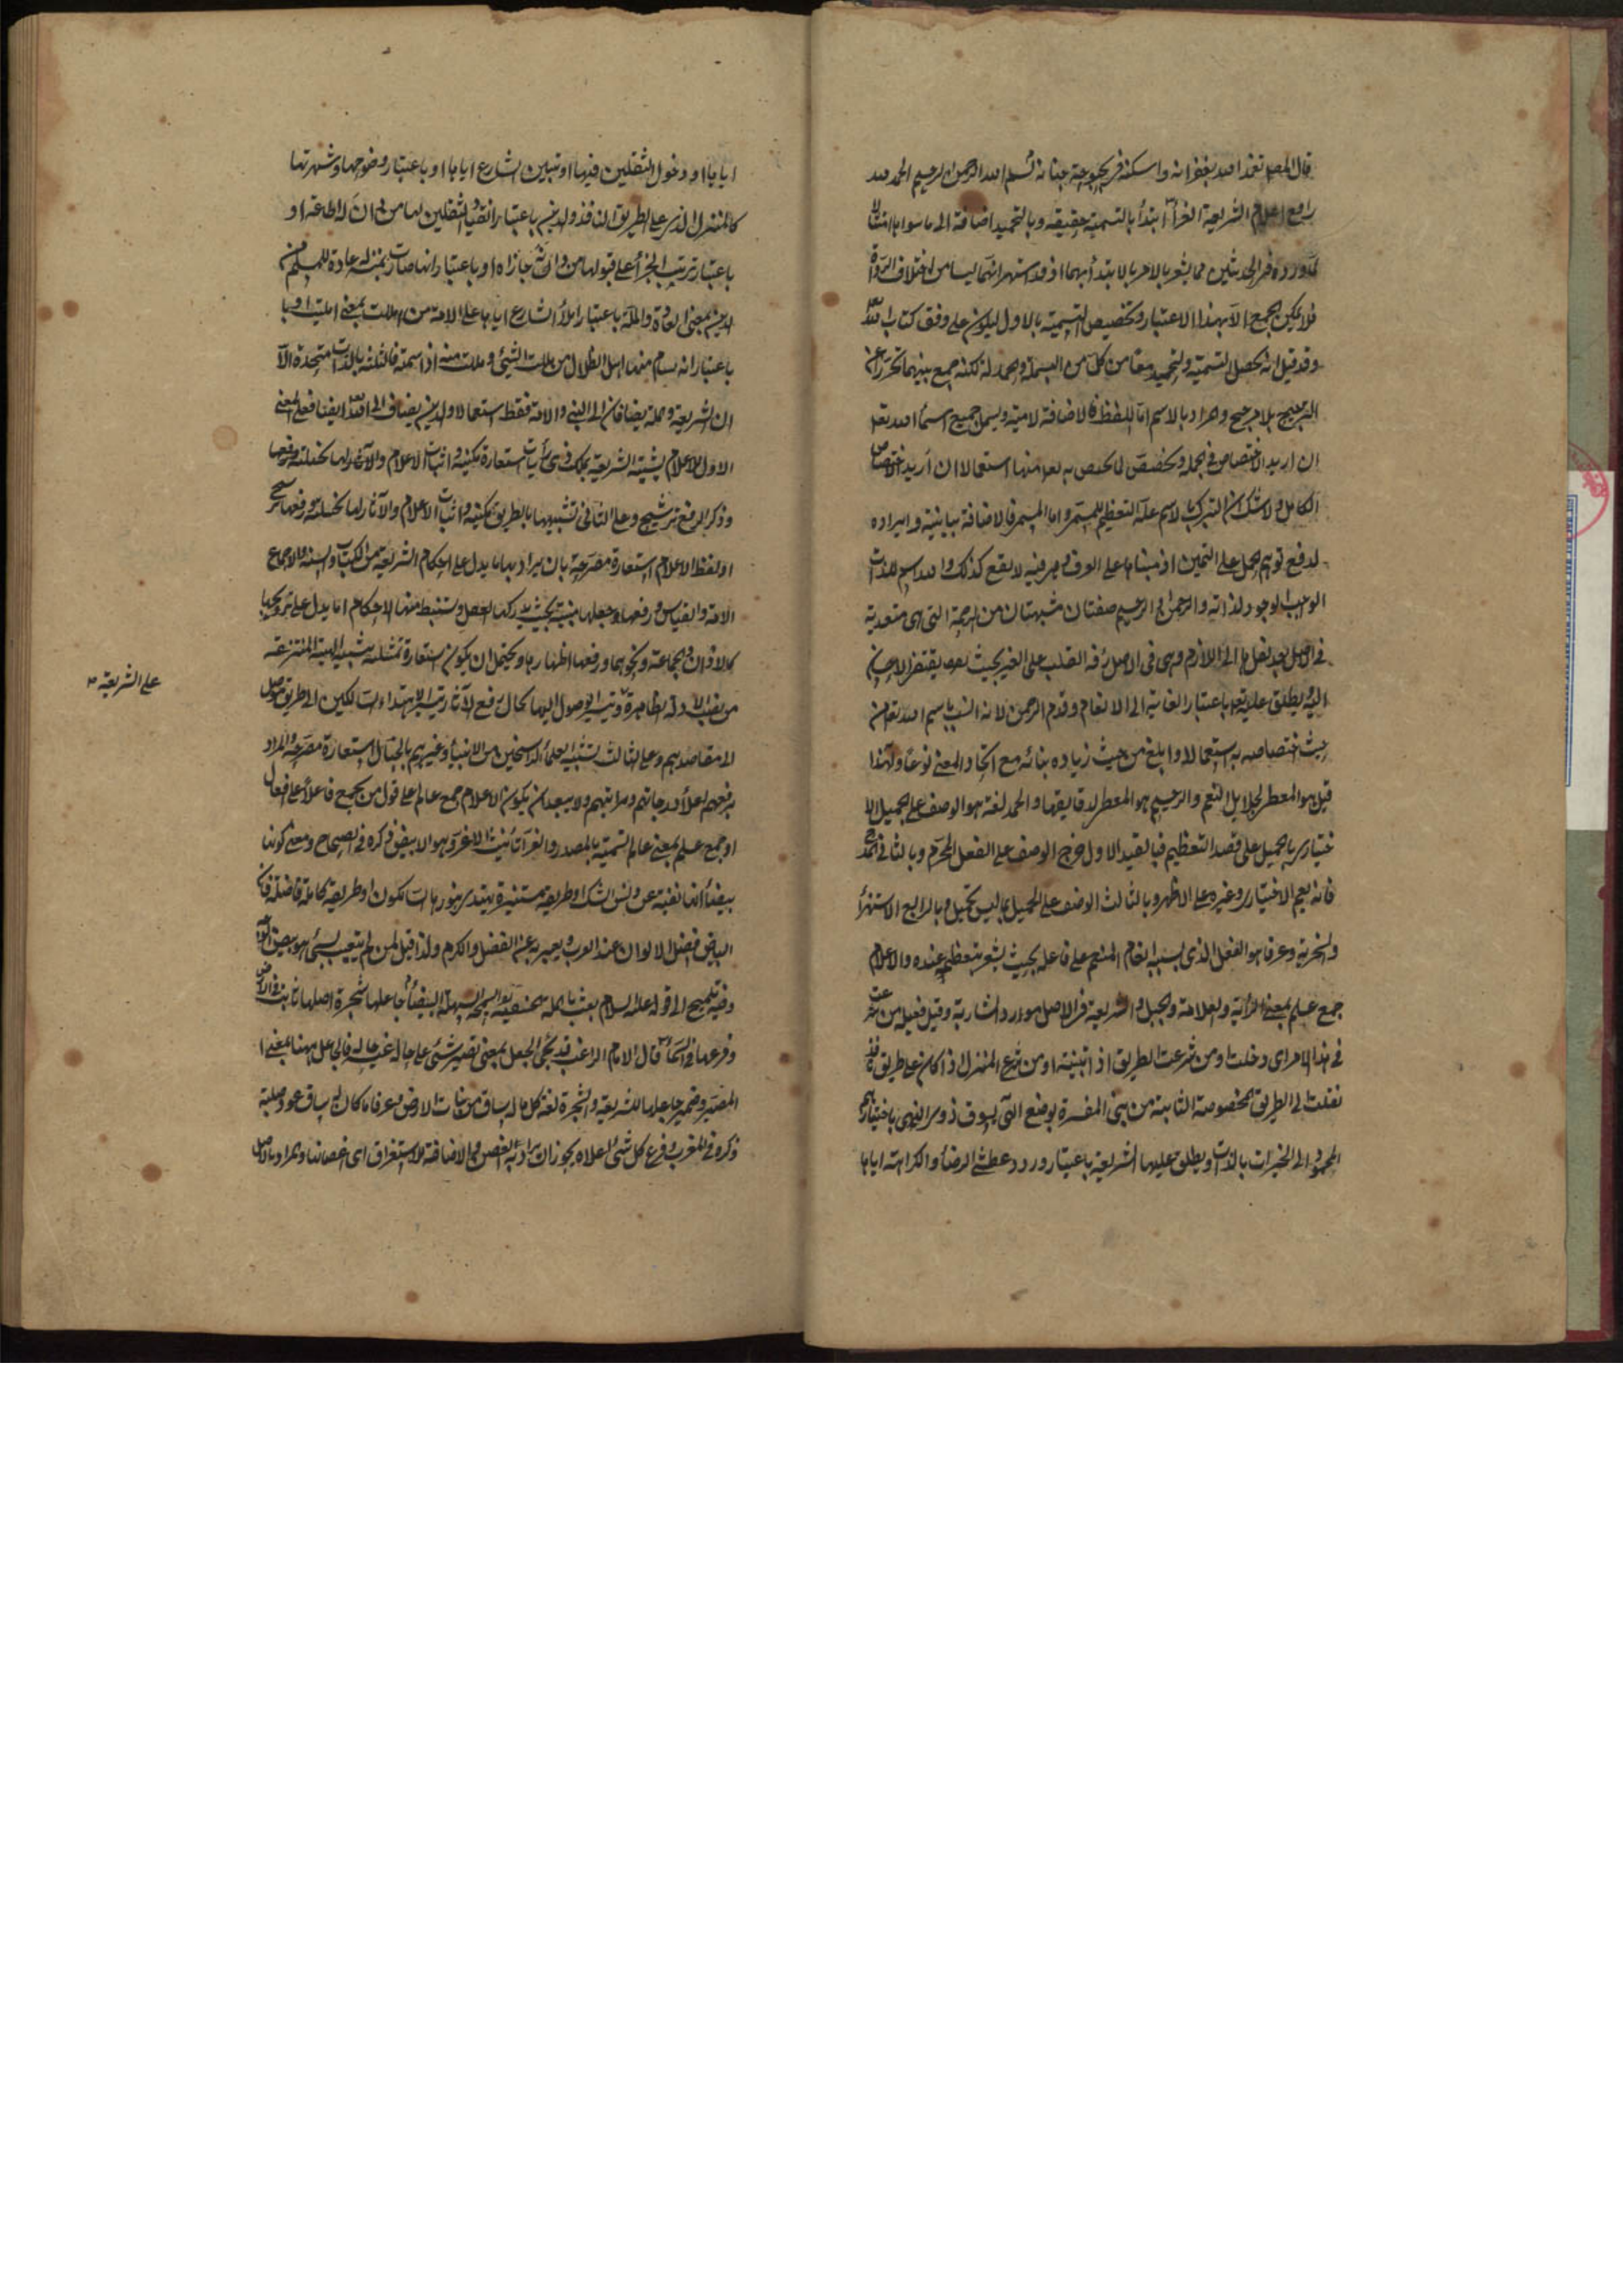 قال المص تغمد الله بغفرانه واسكنه في بحبوحة جنانه بسم الله الرحمن الرحيم الحمد لله
رافع اعلام الشريعة الغراء ابتدأ بالتسمية حقيقة وبالتحميد اضافة الى ما سواها امتثالا
لما ورد في الحديثين مما يشعر بالامر بالابتداء بهما اذ قد اشتهر انهما ليسا من اختلاف الرواة
فلا يمكن الجمع الا بهذا الاعتبار وتخصيص التسمية بالاول ليكون على وفق كتاب الله
وقد قيل انه يحصل التسمية والتحميد معا من كل من البسملة والحمدلة لكنه جمع بينهما تحرزا عن
الترجيح بلا مرجح والمراد بالاسم اما اللفظ فالاضافة لامية ويشمل جميع اسماء الله تعالى
ان اريد الاختصاص في الجملة وتخصص لما يختص به تعالى منها استعمالا ان اريد اختصاص
الكامل ولا شك ان التبرك بالاسم علة التعظيم للمسمى واما المسمى فالاضافة بيانية وايراده
لدفع توهم الحمل على اليمين اذ مبناها على العرف والعرف فيه لا يقع كذلك والله اسم للذات
الواجب الوجود لذاته والرحمن الرحيم صفتان مشبهتان من الرحمة التي هي متعدية
في الاصل بعد نقلها الى اللازم وهي في الاصل رقة القلب على الغير بحيث يقتضي الاحسان
اليه ويطلق عليه تعالى باعتبار الغاية الى الانعام وقدم الرحمن لانه انسب باسم الله تعالى من
حيث اختصاصه به استعمالا وابلغ من حيث زيادة بنائه مع اتحاد المعنى نوعا ولهذا
قيل هو المعطي لجلايل النعم والرحيم هو المعطي لدقايقها والحمد لغة هو الوصف على الجميل الا
ختياري بالجميل على قصد التعظيم فبالقيد الاول خرج الوصف على الفعل المحرم وبالثاني المدح
فانه يعم الاختياري وغيره على الاظهر وبالثالث الوصف على الجميل بما ليس بجميل وبالرابع الاستهزاء
والسخرية وعرفا هو الفعل الذي بسبب انعام المنعم على فاعله بحيث يشعر بتعظيمه عنده والاعلام
جمع علم بمعنى الراية والعلامة والجبل والشريعة في الاصل مورد الشاربة وقيل فعيلة من شرعت
في هذا الامر اي دخلت او من شرعت الطريق اذا تبينته او من شرع المنزل اذا كان على طريق نافذ
نقلت الى الطريق المخصوصة الثابتة من النبي المفسرة بوضع الهي يسوق ذوي النهى باختيارهم
المحمود الى الخيرات بالذات ويطلق عليها الشريعة باعتبار ورود عطشى الرضاء والكرامة اياها
اياها او دخول الثقلين فيها او تبيين الشارع اياها او باعتبار وضوحها وشهرتها
كالمنزل الذي على الطريق النافذ والدين باعتبار انقياد الثقلين لها من دان له اطاعه او
باعتبار ترتب الجزاء على قبولها من دانه جازاه او باعتبار انها صارت بمنزلة عادة للمسلم من
الدين بمعنى العادة والملة باعتبار املاء الشارع اياها على الامة من امللت بمعنى امليت او با
باعتبار انه يسأم منها اهل الضلال من مللت الشيء ومللت منه اذا سئمته فالثلثة بالذات متحدة الا
ان الشريعة والملة يضافان الى النبي والامة فقط استعمالا والدين يضاف الى الله ايضا فعلى المعنى
الاول للاعلام تشبيه الشريعة بملك ذي رايات استعارة مكنية واثبات الاعلام والآثار لها تخييلية ورفعها
وذكر الرفع ترشيح وعلى الثاني تشبيهها بالطريق مكنية واثبات الاعلام والآثار لها تخييلية ورفعها ترشيح
او لفظ الاعلام استعارة مصرحة بان يراد بها ما يدل على احكام الشريعة من الكتاب والسنة والاجماع
الامة والقياس ورفعها وجعلها مبنية بحيث يدركها العقل ويستنبط منها الاحكام او ما يدل على ترويجها
كالاذان والجماعة ونحوهما ورفعها اظهارها ويحتمل ان يكون استعارة تمثيلية بتشبيه الهيئة المنتزعة
من نصب الادلة الظاهرة وتيسير الوصول اليها بحال رفع الآثار ليتيسر اهتداء السالكين الى طريق توصل
الى مقاصدهم وعلى الثالث تشبيه العلماء الراسخين من الانبياء وغيرهم بالجبال استعارة مصرحة والمراد
برفعهم اعلاء درجاتهم ومراتبهم ولا يبعد ان يكون الاعلام جمع عالم على قول من يجمع فاعلا على افعال
او جمع علم بمعنى عالم التسمية بالمصدر والغراء تأنيث الاغر وهو الابيض ذكره في الصحاح ومعنى كونها
بيضاء انها نقية عن دنس الشك او طريقة مستنيرة يهتدى بنورها السالكون او طريقة كاملة فاضلة فان
البياض افضل الالوان عند العرب ويعبر به عن الفضل والكرم ولذا قيل لمن لم يتعيب بشيء هو ابيض الوجه
وفيه تلميح الى قوله عليه السلام بعثت بالملة الحنيفية السمحة السهلة البيضاء جاعلها شجرة اصلها ثابت في الارض
وفرعها في السماء قال الامام الراغب قد يجيء الجعل بمعنى تصيير شيء على حالة غب حالة فالجاعل ههنا بمعنى ا
المصير وضمير جاعلها للشريعة والشجرة لغة كل ما له ساق من نبات الارض وعرفا ما كان له ساق عود صلبة
ذكره في المغرب وفرع كل شيء اعلاه يجوز ان يراد به الغصن والاضافة للاستغراق اي اغصانها والمراد بالاصل
على الشريعة